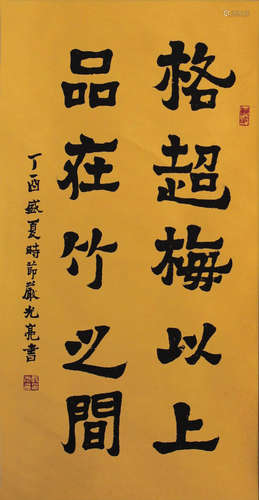 格超梅以上
品在竹之間
丁酉盛夏時節嚴光亮書